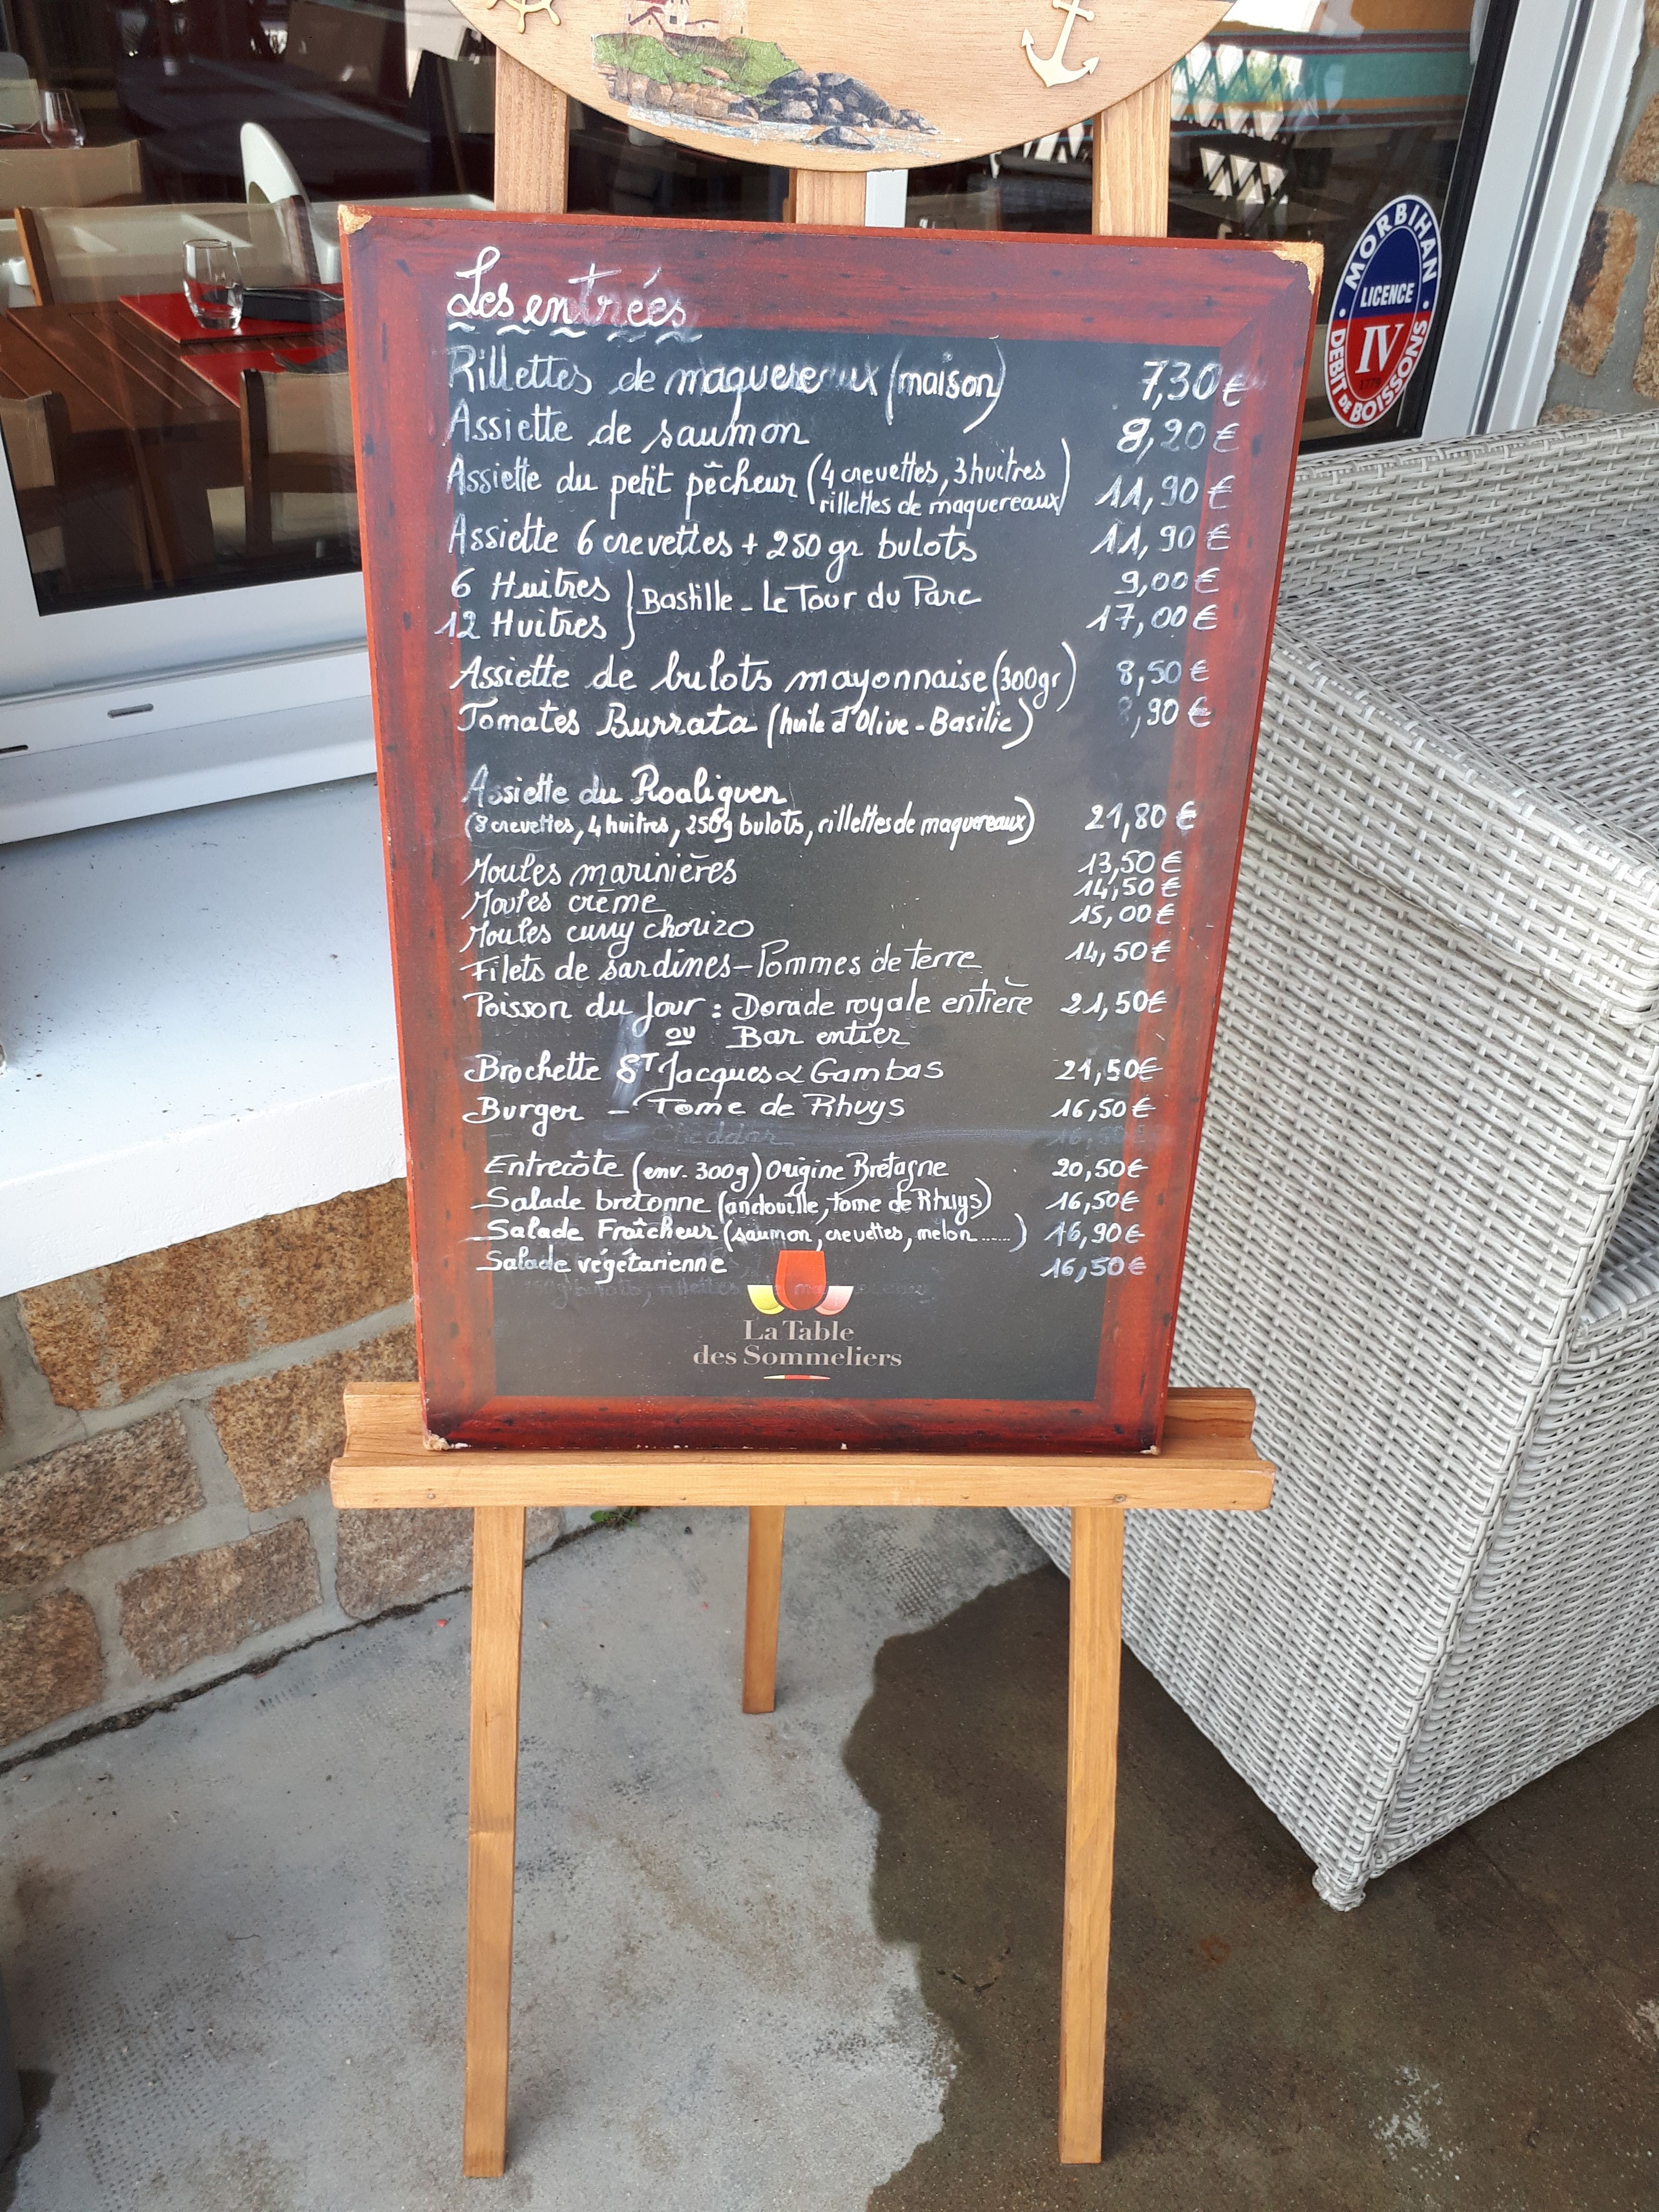 Les entrées
Rillettes de maquereaux (maison) 7,30 €
Assiette de saumon 8,20 €
Assiette du petit pêcheur (4 crevettes, 3 huîtres
rillettes de maquereaux) 11,90 €
Assiette 6 crevettes + 250 gr bulots 11,90 €
6 Huitres } Bastille - Le Tour du Parc 9,00 €
12 Huitres 17,00 €
Assiette de bulots mayonnaise (300gr) 8,50 €
Tomates Burrata (huile d'Olive - Basilic) 8,90 €
Assiette du Roaliguen
(8 crevettes, 4 huitres, 250g bulots, rillettes de maquereaux) 21,80 €
Moules marinières 13,50 €
Moules crème 14,50 €
Moules curry chorizo 15,00 €
Filets de sardines - Pommes de terre 14,50 €
Poisson du Jour : Dorade royale entière 21,50 €
ou Bar entier
Brochette ST Jacques & Gambas 21,50 €
Burger - Tome de Rhuys 16,50 €
Cheddar 16,50 €
Entrecôte (env. 300g) Origine Bretagne 20,50 €
Salade bretonne (andouille, tome de Rhuys) 16,50 €
Salade Fraîcheur (saumon, crevettes, melon ......) 16,90 €
Salade végétarienne 16,50 €
La Table
des Sommeliers
MORBIHAN
LICENCE
IV
DEBIT DE BOISSONS